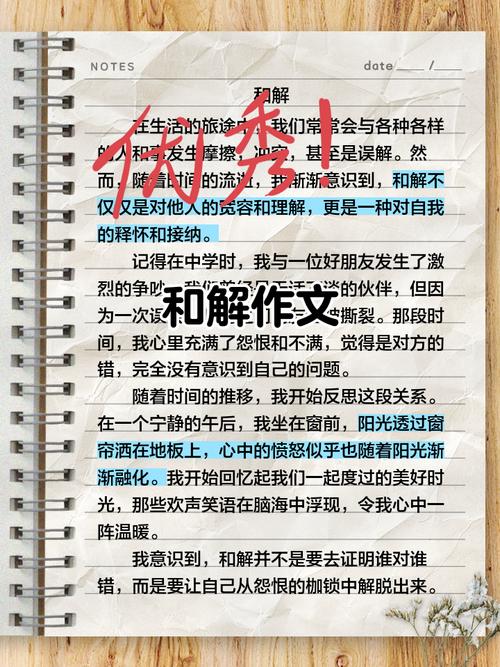 NOTES
date ___ / ___
和解
在生活的旅途中，我们常常会与各种各样
的人和事发生摩擦、冲突，甚至是误解。然
而，随着时间的流逝，我渐渐意识到，和解不
仅仅是对他人的宽容和理解，更是一种对自我
的释怀和接纳。
优秀！
记得在中学时，我与一位好朋友发生了激
烈的争吵。我们曾经是无话不谈的伙伴，但因
为一次误被撕裂。那段时
和解作文
间，我心里充满了怨恨和不满，觉得是对方的
错，完全没有意识到自己的问题。
随着时间的推移，我开始反思这段关系。
在一个宁静的午后，我坐在窗前，阳光透过窗
帘洒在地板上，心中的愤怒似乎也随着阳光渐
渐融化。我开始回忆起我们一起度过的美好时
光，那些欢声笑语在脑海中浮现，令我心中一
阵温暖。
我意识到，和解并不是要去证明谁对谁
错，而是要让自己从怨恨的枷锁中解脱出来。